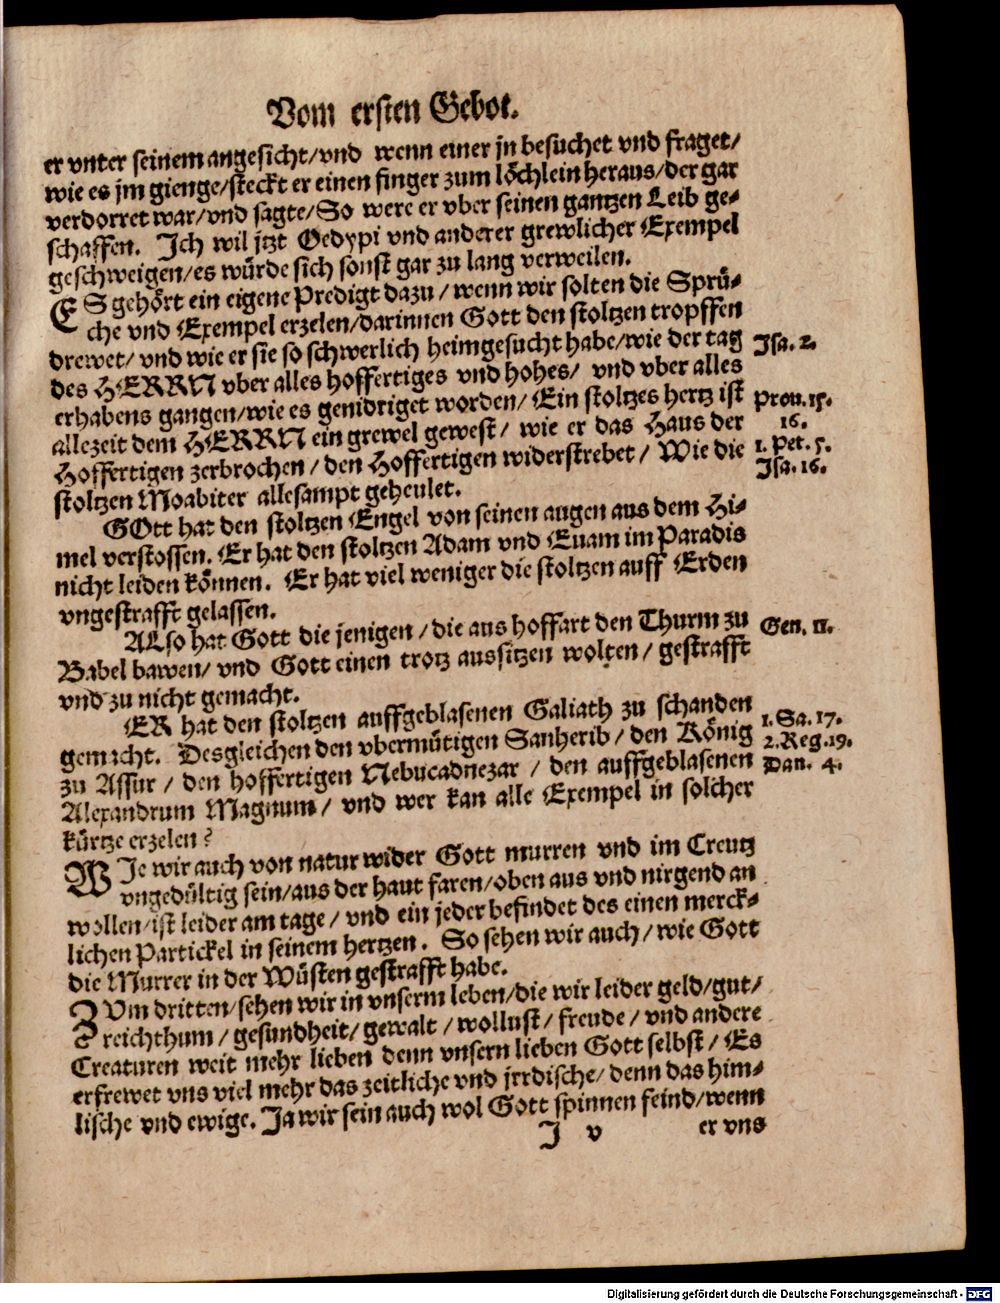 Vom ersten Gebot.
er vnter seinem angesicht/vnd wenn einer jn besuchet vnd fraget/
wie es jm gienge/steckt er einen finger zum löchlein heraus/der gar
verdorret war/vnd sagte/So were er vber seinen gantzen Leib ge-
schaffen. Ich wil jtzt Oedypi vnd anderer grewlicher Exempel
geschweigen/es würde sich sonst gar zu lang verweilen.
ES gehört ein eigene Predigt dazu/wenn wir solten die Sprü-
che vnd Exempel erzelen/darinnen Gott den stoltzen tropffen
drewet/vnd wie er sie so schwerlich heimgesucht habe/wie der tag
Isa. 2.
des HERRN vber alles hoffertiges vnd hohes/ vnd vber alles
erhabens gangen/wie es genidriget worden/ Ein stoltzes hertz ist
Prou. 15.
allezeit dem HERRN ein grewel gewest/ wie er das Haus der
16.
Hoffertigen zerbrochen/den Hoffertigen widerstrebet/ Wie die
1. Pet. 5.
Isa. 16.
stoltzen Moabiter allesampt geheulet.
GOtt hat den stoltzen Engel von seinen augen aus dem Hi-
mel verstossen. Er hat den stoltzen Adam vnd Euam im Paradis
nicht leiden können. Er hat viel weniger die stoltzen auff Erden
vngestrafft gelassen.
ALso hat Gott die jenigen/die aus hoffart den Thurm zu
Gen. 11.
Babel bawen/ vnd Gott einen trotz aussitzen wolten/ gestrafft
vnd zu nicht gemacht.
ER hat den stoltzen auffgeblasenen Galiath zu schanden
1. Sa. 17.
gemacht. Desgleichen den vbermütigen Sanherib/den König
2. Reg. 19.
zu Assur/ den hoffertigen Nebucadnezar/ den auffgeblasenen
Dan. 4.
Alexandrum Magnum/ vnd wer kan alle Exempel in solcher
kürtze erzelen?
WIe wir auch von natur wider Gott murren vnd im Creutz
vngedültig sein/aus der haut faren/oben aus vnd nirgend an
wollen/ist leider am tage/ vnd ein jeder befindet des einen merck-
lichen Partickel in seinem hertzen. So sehen wir auch/wie Gott
die Murrer in der Wüsten gestrafft habe.
ZVm dritten/sehen wir in vnserm leben/die wir leider geld/gut/
reichthum/gesundheit/gewalt/wollust/freude/ vnd andere
Creaturen weit mehr lieben denn vnsern lieben Gott selbst/ Es
erfrewet vns viel mehr das zeitliche vnd jrrdische/denn das him-
lische vnd ewige. Ja wir sein auch wol Gott spinnen feind/wenn
I v er vns
Digitalisierung gefördert durch die Deutsche Forschungsgemeinschaft - DFG